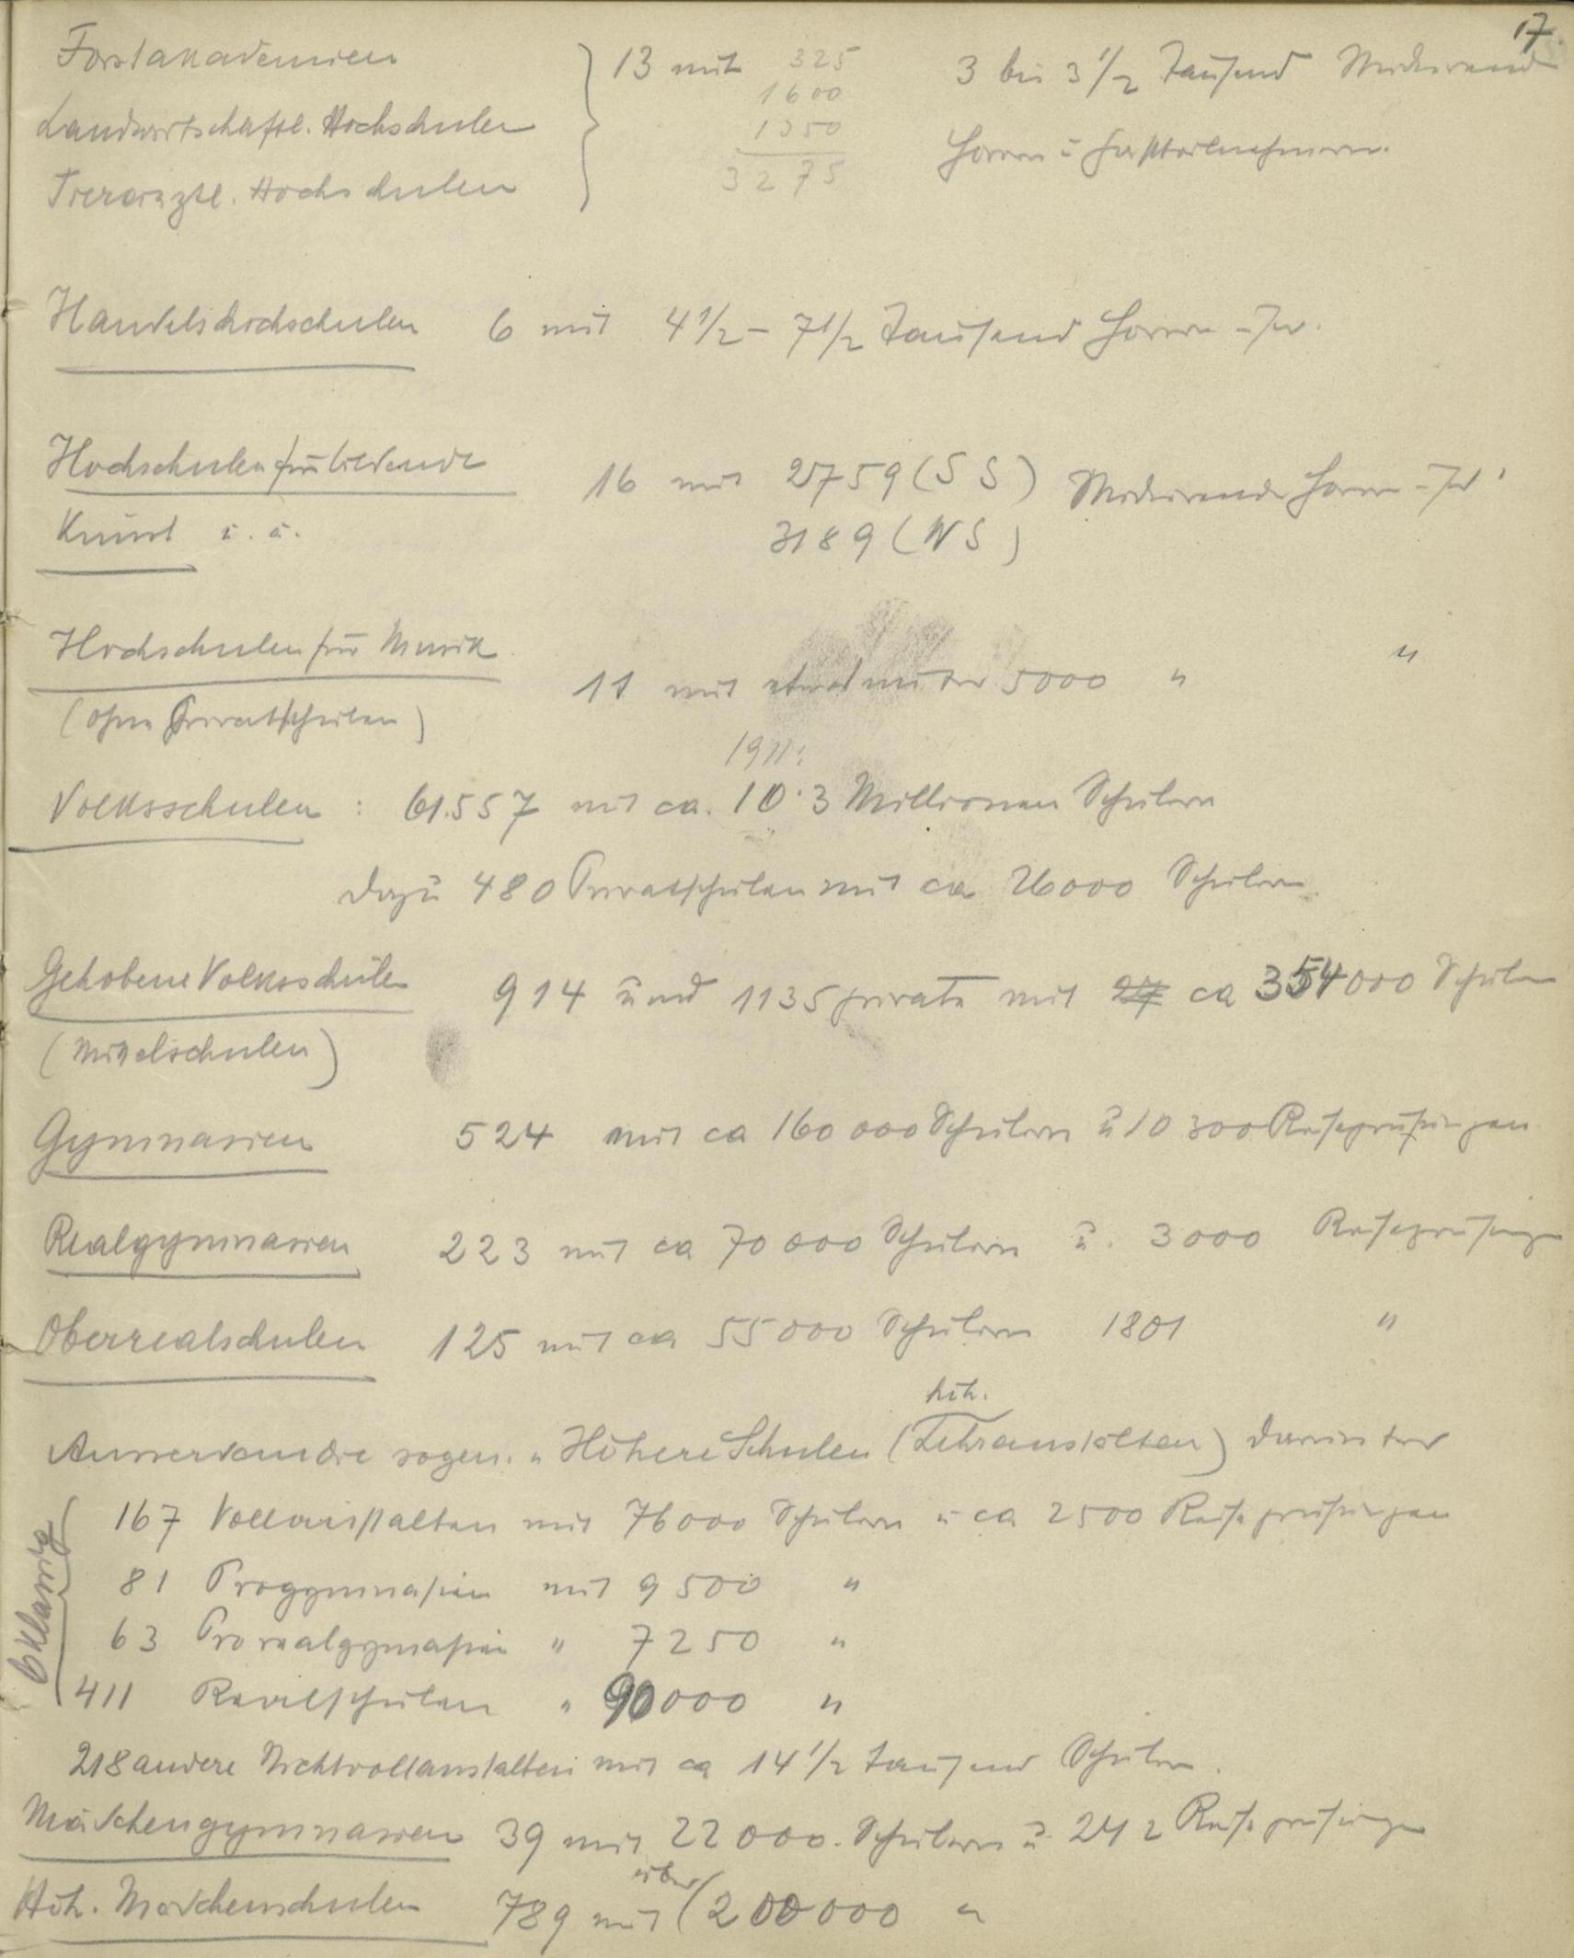 17.
Forstakademien } 13 mit 325 3 bis 3 1/2 Tausend Studierend
1600
Landwirtschaftl. Hochschulen 1350 Hörern u. Gastteilnehmern.
Tierärztl. Hochschulen 3275
Handelshochschulen 6 mit 4 1/2 – 7 1/2 Tausend Hörern usw.
Hochschulen für bildende 16 mit 2759 (SS) Studierende Hörern usw.
Kunst u. ä. 3189 (WS)
Hochschulen für Musik
11 mit etwas unter 5000 " "
(ohne Privatschulen)
1911:
Volksschulen : 61.557 mit ca. 10.3 Millionen Schülern
dazu 480 Privatschulen mit ca 26000 Schülern.
Gehobene Volksschulen 914 und 1135 private mit ca 354000 Schülern
(Mittelschulen)
Gymnasien 524 mit ca 160 000 Schülern u 10 300 Reifeprüfungen
Realgymnasien 223 mit ca 70 000 Schülern u. 3000 Reifeprüfungen
Oberrealschulen 125 mit ca 55 000 Schülern 1801 "
höh.
Ausserdem die sogen. "Höhere Schulen (Lehranstalten) darunter
167 Vollanstalten mit 76000 Schülern u ca 2500 Reifeprüfungen
6 klassig
81 Progymnasien mit 9500 "
63 Prorealgymnasien " 7250 "
411 Realschulen " 90000 "
218 andere Nichtvollanstalten mit ca 14 1/2 tausend Schülern.
Mädchengymnasien 39 mit 22 000. Schülern u. 242 Reifeprüfungen
über
Höh. Mädchenschulen 789 mit (200 000 "